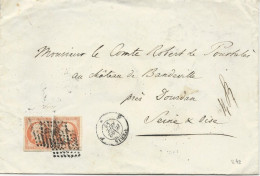 Monsieur le Comte Robert de Pourtalès
au château de Bandeville
près Dourdan
Seine & Oise